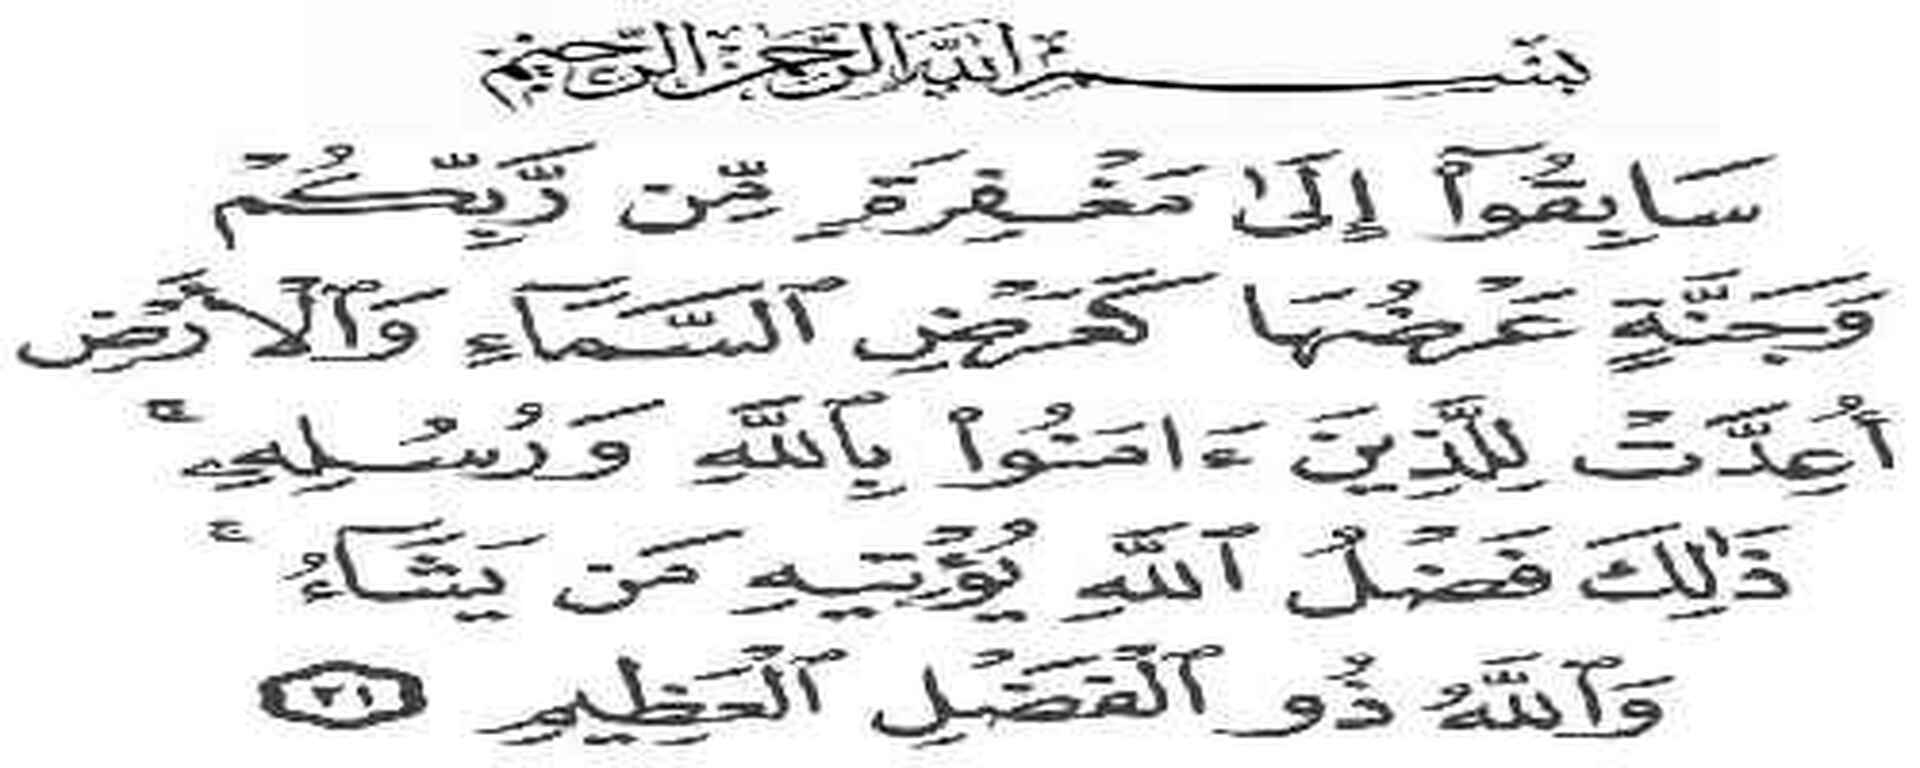 بِسْمِ اللَّهِ الرَّحْمَٰنِ الرَّحِيمِ
سَابِقُوٓا۟ إِلَىٰ مَغْفِرَةٍ مِّن رَّبِّكُمْ
وَجَنَّةٍ عَرْضُهَا كَعَرْضِ ٱلسَّمَآءِ وَٱلْأَرْضِ
أُعِدَّتْ لِلَّذِينَ ءَامَنُوا۟ بِٱللَّهِ وَرُسُلِهِۦ ۚ
ذَٰلِكَ فَضْلُ ٱللَّهِ يُؤْتِيهِ مَن يَشَآءُ ۚ
وَٱللَّهُ ذُو ٱلْفَضْلِ ٱلْعَظِيمِ ٢١